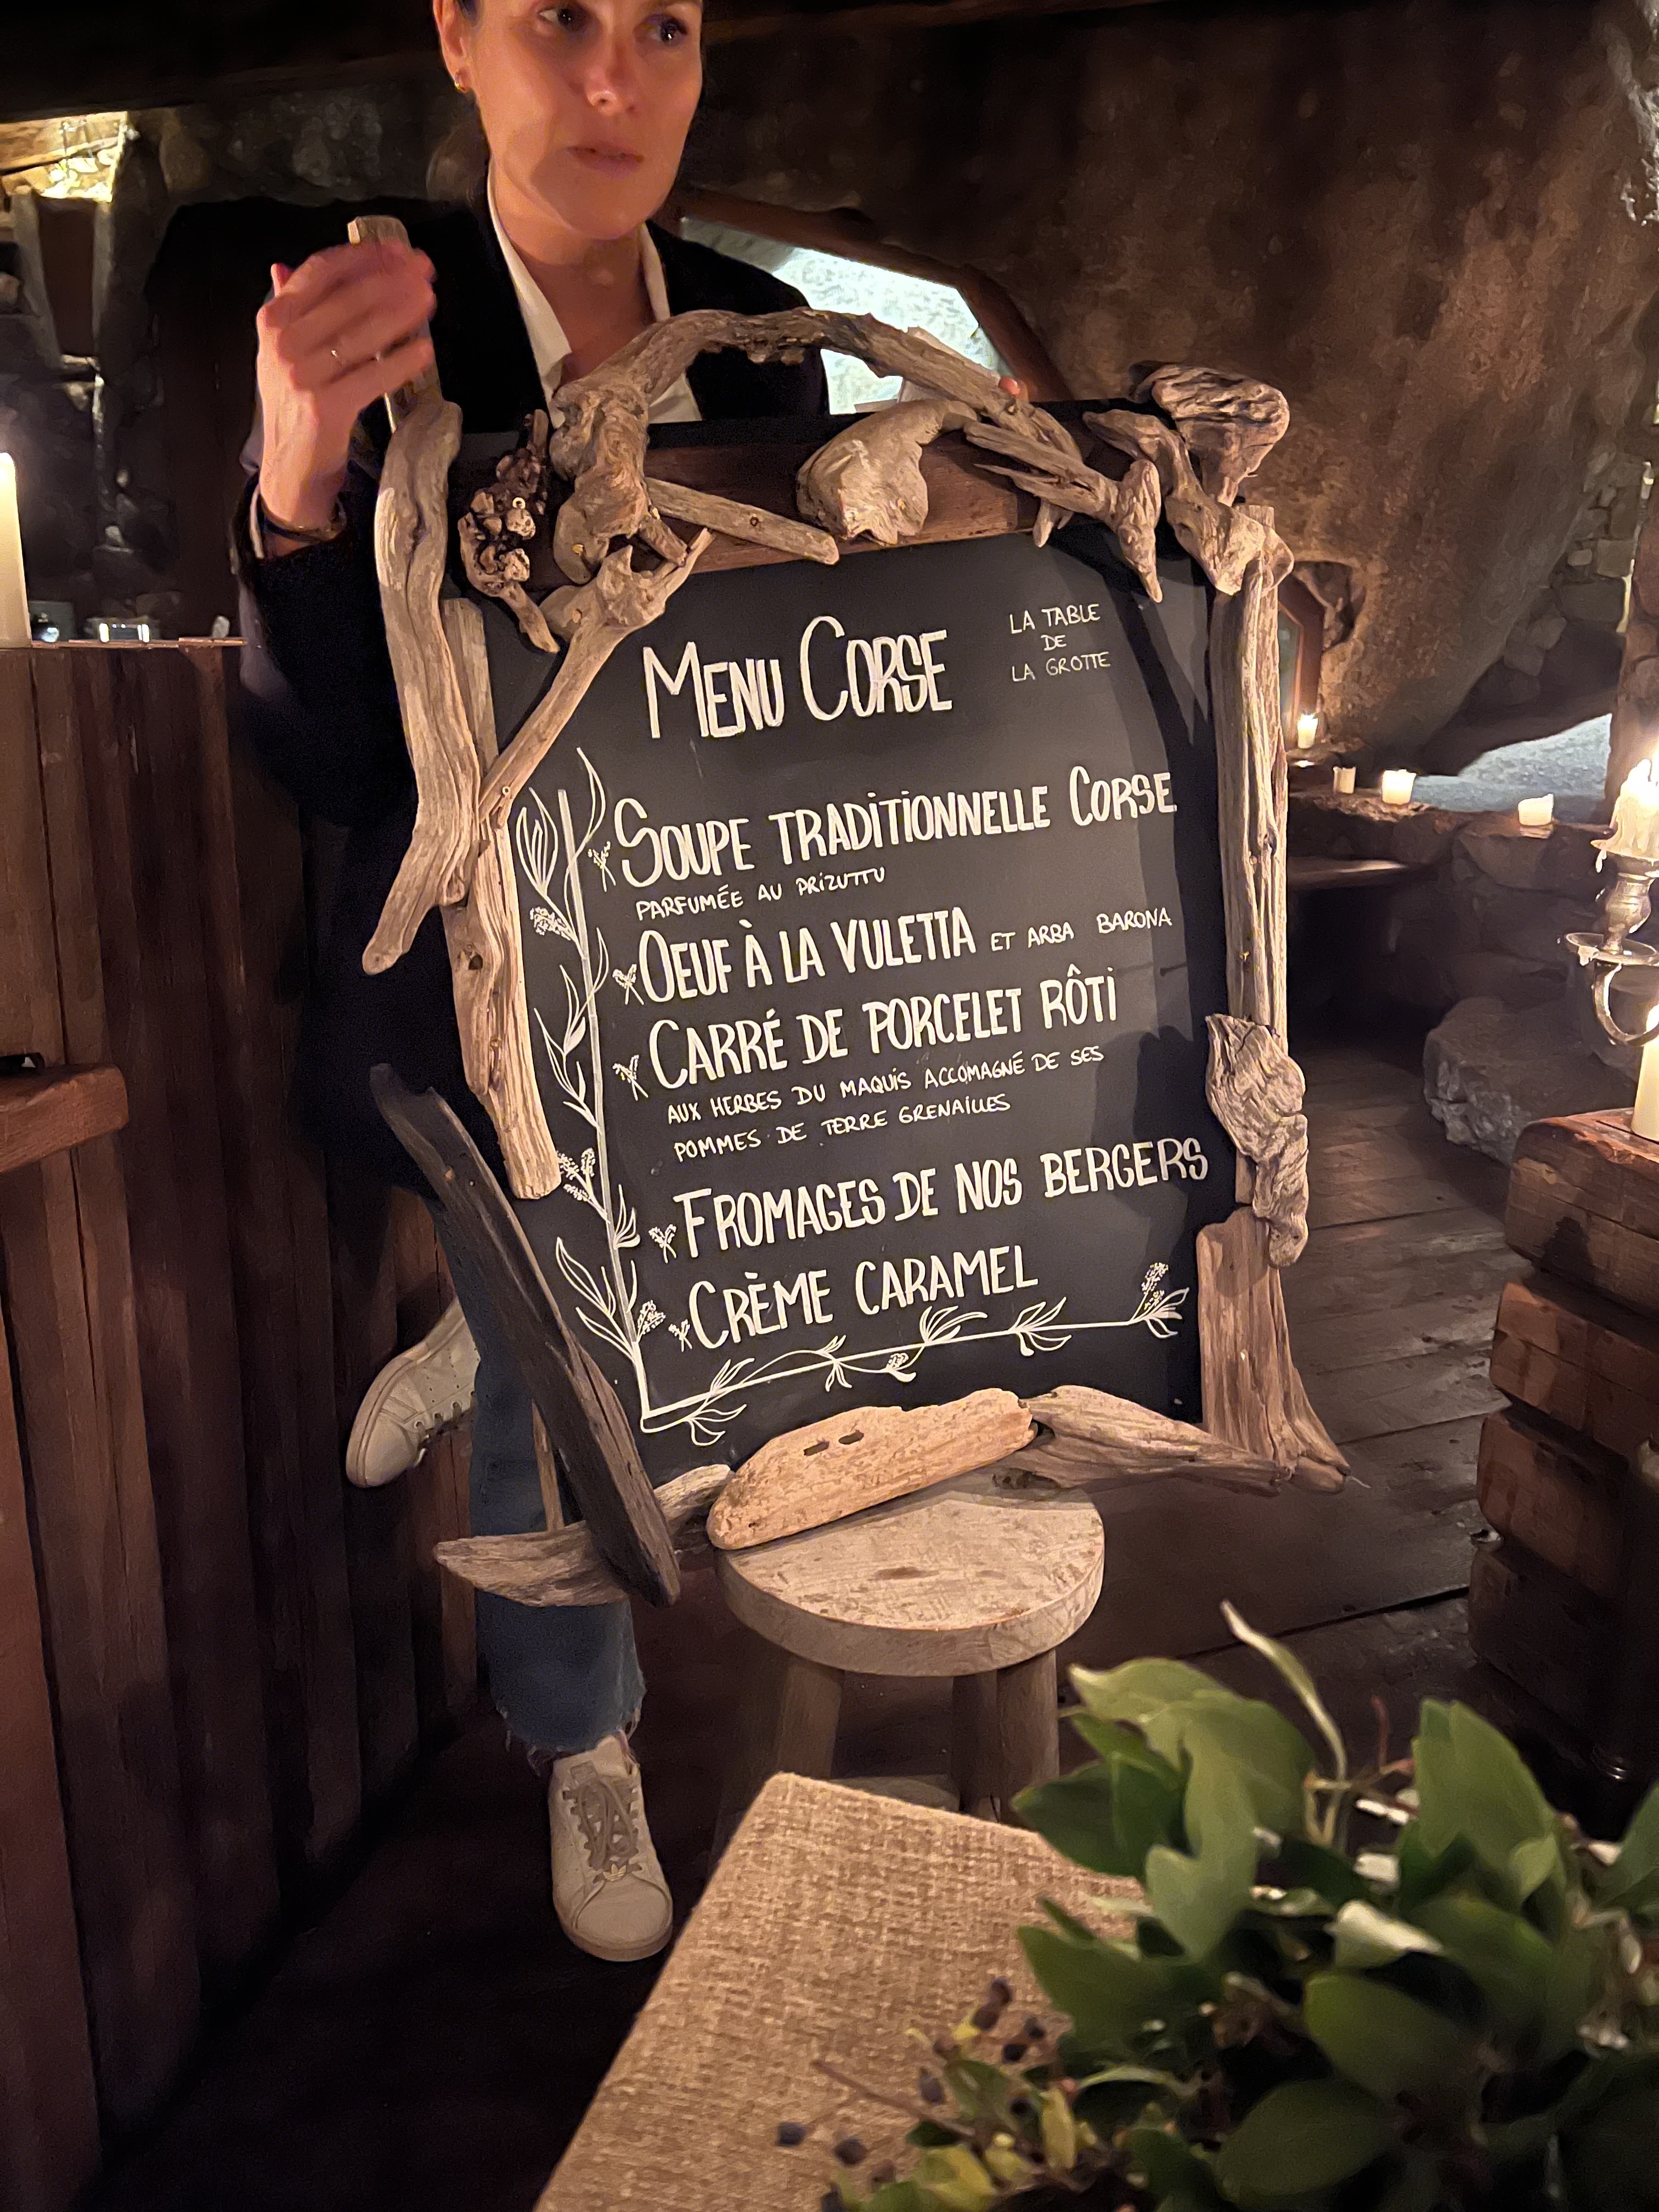 MENU CORSE
LA TABLE
DE
LA GROTTE
SOUPE TRADITIONNELLE CORSE
PARFUMÉE AU PRIZUTTU
OEUF À LA VULETTA ET ARBA BARONA
CARRÉ DE PORCELET RÔTI
AUX HERBES DU MAQUIS ACCOMAGNÉ DE SES
POMMES DE TERRE GRENAILLES
FROMAGES DE NOS BERGERS
CRÈME CARAMEL